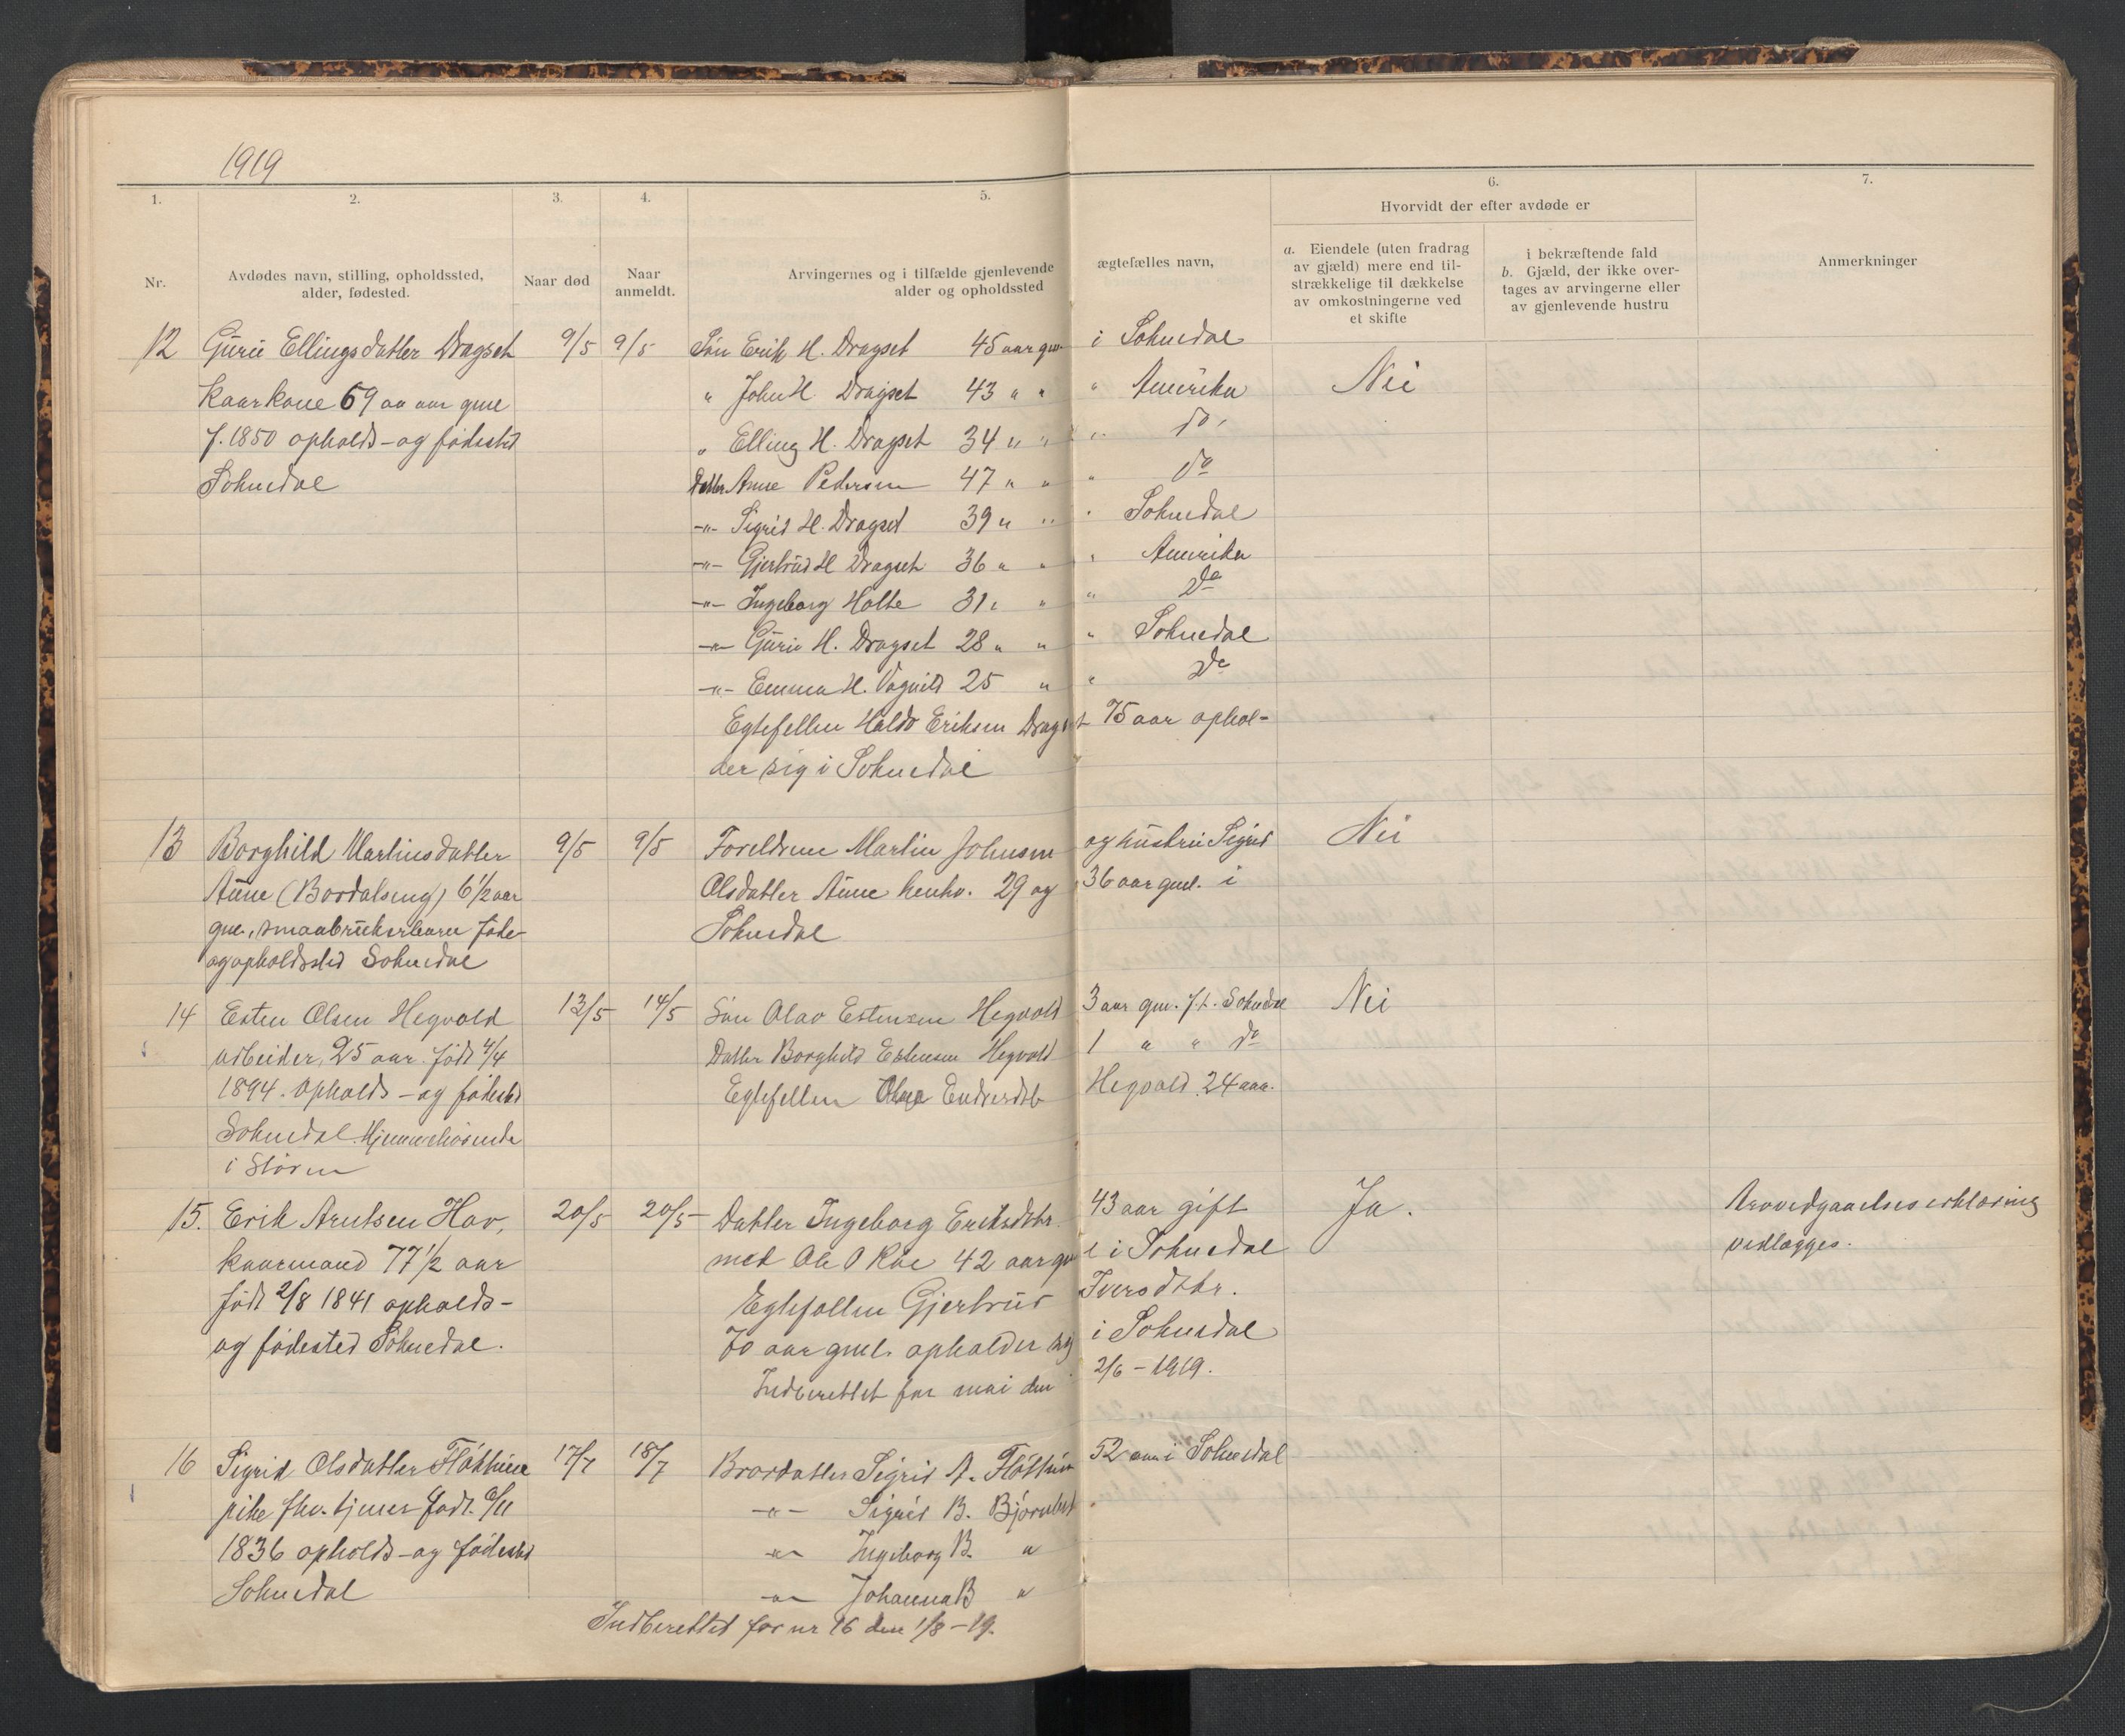 1919
1. 2. 3. 4. 5. 6. 7.
Hvorvidt der efter avdøde er
Nr.
Avdødes navn, stilling, opholdssted,
alder, fødested.
Naar død
Naar
anmeldt.
Arvingernes og i tilfælde gjenlevende ægtefælles navn,
alder og opholdssted
a. Eiendele (uten fradrag
av gjæld) mere end til-
strækkelige til dækkelse
av omkostningerne ved
et skifte
i bekræftende fald
b. Gjæld, der ikke over-
tages av arvingerne eller
av gjenlevende hustru
Anmerkninger
12 Guru Ellingsdatter Dragset 9/5 9/5 Søn Erik H. Dragset 45 aar gm. i Soknedal
kaarkone 69 aa aar gml " John H. Dragset 43 " " " Amerika Nei
f. 1850 opholds- og fødested " Elling H. Dragset 34 " " " do.
Soknedal Datter Anne Pedersen 47 " " " do
-"- Sigrid H. Dragset 39 " " " Soknedal
-"- Gjertrud H Dragset 36 " " " Amerika
-"- Ingeborg Holte 31 " " " do
-"- Guru H. Dragset 28 " " " Soknedal
-"- Emma H. Vagnild 25 " " do
Egtefellen Haldo Eriksen Dragset 75 aar ophol-
der sig i Soknedal
13 Borghild Martinsdatter 9/5 9/5 Foreldrene Martin Johnsen og hustru Sigrid Nei
Aune (Bordalseng) 6 1/2 aar Olsdatter Aune henhv. 29 og 36 aar gml. i
gml. smaabrukerbarn føde- Soknedal
og opholdssted Soknedal
14 Esten Olsen Hegvold 13/5 14/5 Søn Olav Estensen Hegvold 3 aar gm. f.t. Soknedal Nei
arbeider, 25 aar. født 4/4 Datter Borghild Estensen Hegvold 1 " " do
1894. opholds- og fødested Egtefellen Olga Endresdtr Hegvold 24 aar.
Soknedal. Hjemmehørende
i Støren
15. Erik Arntsen Hov, 20/5 20/5 Datter Ingeborg Eriksdtr. 43 aar gift Ja. Arvedgaaelseserklæring
kaarmand 77 1/2 aar med Ole O Röe 42 aar gml i Soknedal vedlægges.
født 2/8 1841 opholds- Egtefellen Gjertrud Iversdtr.
og fødested Soknedal. 70 aar gml. opholder sig i Soknedal
Indberettet for mai den 2/6 - 1919.
16 Sigrid Olsdatter Fløttum 17/7 18/7 Brordatter Sigrid A. Fløttum 52 aar i Soknedal
pike fhv. tjener født. 6/11 -"- Sigrid B. "
1836 opholds- og fødested -"- Ingeborg B. "
Soknedal -"- Johanna B "
Indberettet for nr 16 den 1/8 - 19.